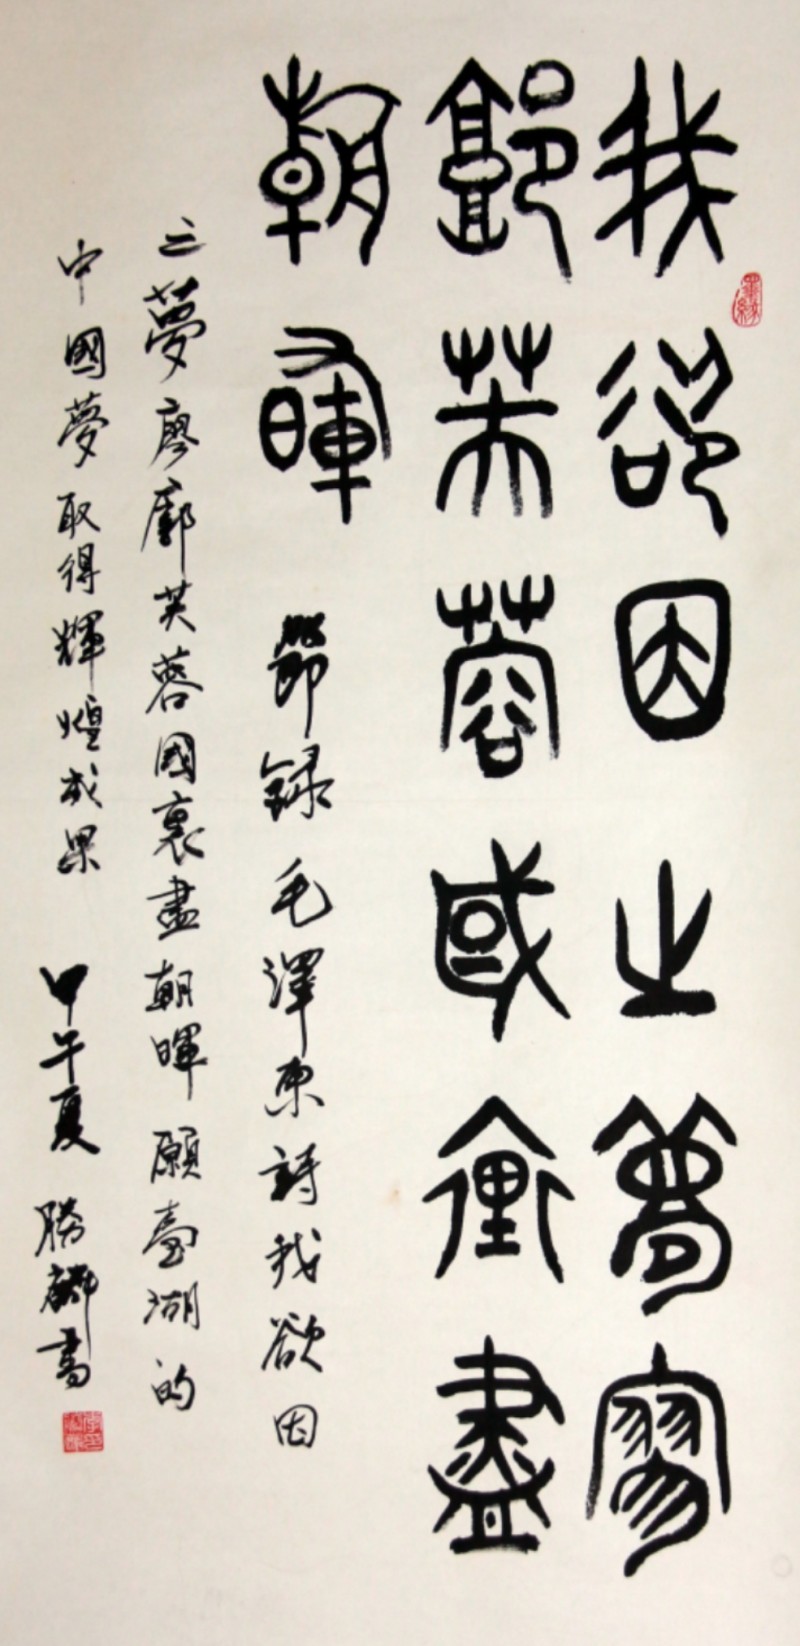 我欲因之夢寥
郭芙蓉國裏盡
朝暉 節錄毛澤東詩我欲因
之夢廖廓芙蓉國裏盡朝暉願臺湖的
中國夢取得輝煌成果 甲午夏 勝麟書
墨緣